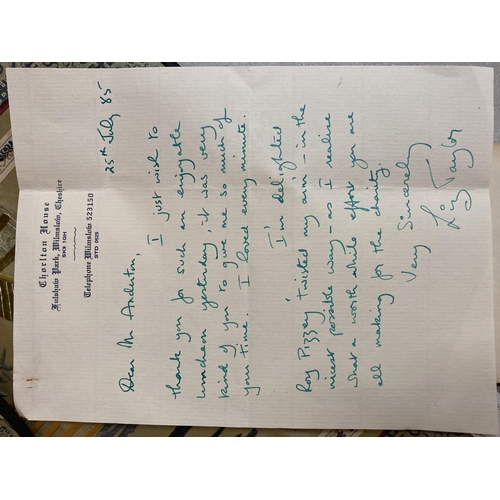 Chorlton House
Fulshaw Park, Wilmslow, Cheshire
SK9 1QH
Telephone Wilmslow 523150
STD 0625
25th July 85
Dear Mr Anderton,
I just wish to
thank you for such an enjoyable
luncheon yesterday, it was very
kind of you to give me so much of
your time. I loved every minute.
I'm delighted
Roy Pizzey 'twisted my arm - in the
nicest possible way - as I realise
what a worth while effort you are
all making for the charity.
Very Sincerely
Liz Taylor